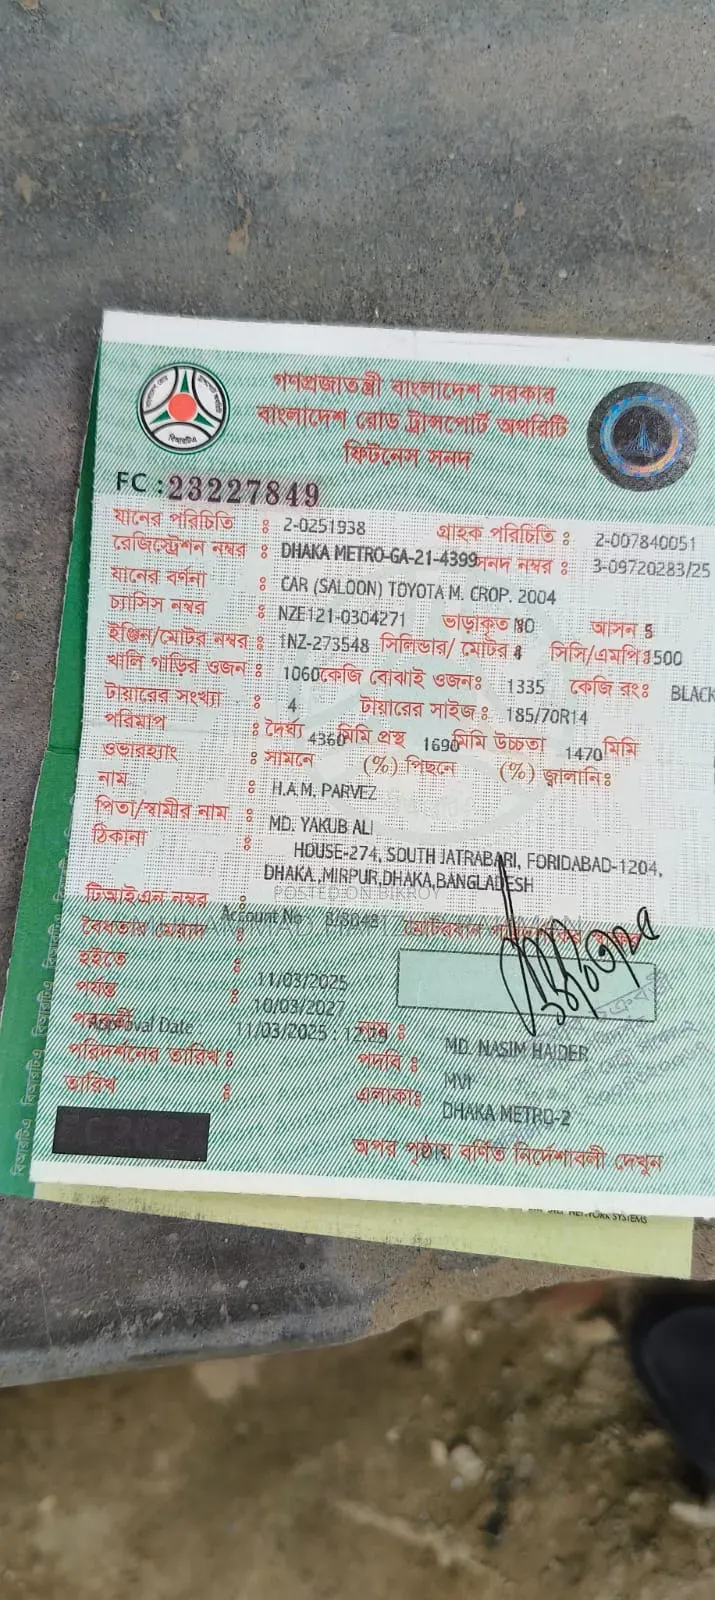 গণপ্রজাতন্ত্রী বাংলাদেশ সরকার
বাংলাদেশ রোড ট্রান্সপোর্ট অথরিটি
ফিটনেস সনদ
বিআরটিএ
FC : 23227849
যানের পরিচিতি : 2-0251938 গ্রাহক পরিচিতি : 2-007840051
রেজিস্ট্রেশন নম্বর : DHAKA METRO-GA-21-4399 সনদ নম্বর : 3-09720283/25
যানের বর্ণনা : CAR (SALOON) TOYOTA M. CROP. 2004
চ্যাসিস নম্বর : NZE121-0304271 ভাড়াকৃত NO আসন 5
ইঞ্জিন/মোটর নম্বর : 1NZ-273548 সিলিন্ডার/ মোটর 4 সিসি/এমপি 1500
খালি গাড়ির ওজন : 1060 কেজি বোঝাই ওজন: 1335 কেজি রং: BLACK
টায়ারের সংখ্যা : 4 টায়ারের সাইজ : 185/70R14
পরিমাপ : দৈর্ঘ্য 4360 মিমি প্রস্থ 1690 মিমি উচ্চতা 1470 মিমি
ওভারহ্যাং : সামনে (%) পিছনে (%) জ্বালানি:
নাম : H.A.M. PARVEZ
পিতা/স্বামীর নাম : MD. YAKUB ALI
ঠিকানা : HOUSE-274, SOUTH JATRABARI, FORIDABAD-1204,
DHAKA.,MIRPUR,DHAKA,BANGLADESH
POSTED ON BIKROY
টিআইএন নম্বর :
Account No
বৈধতার মেয়াদ : মোটরযান
হইতে : 11/03/2025
পর্যন্ত : 10/03/2027
Approval Date : 11/03/2025 : 12:29
পরবর্তী
পরিদর্শনের তারিখ :
তারিখ :
নাম : MD. NASIM HAIDER
পদবি : MVI
এলাকা: DHAKA METRO-2
অপর পৃষ্ঠায় বর্ণিত নির্দেশাবলী দেখুন
NETWORK SYSTEMS
বিআরটিএ বিআরটিএ বিআরটিএ বিআরটিএ